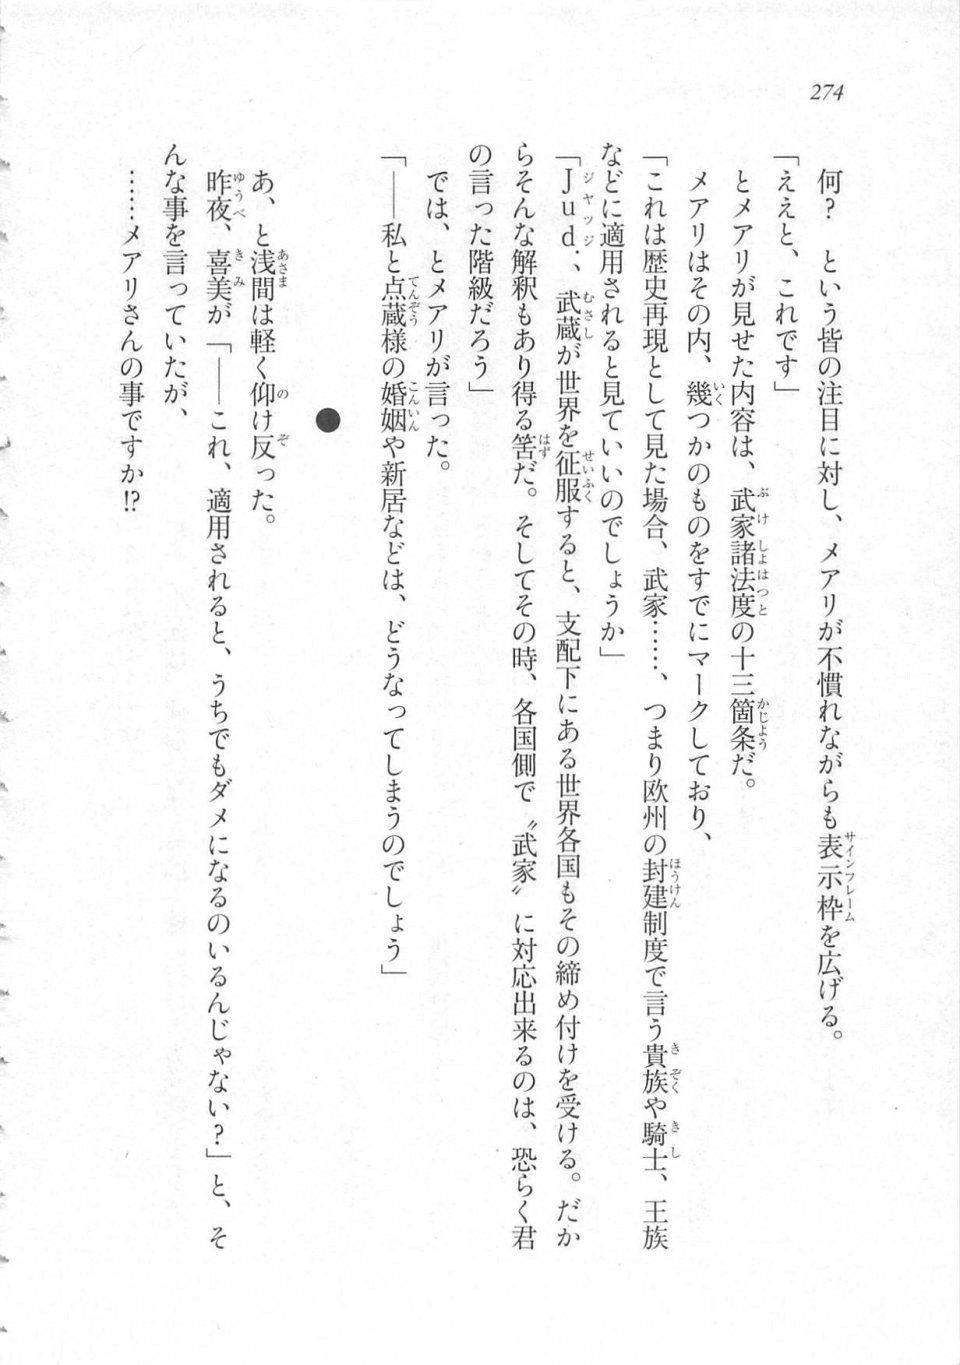 274
何？　という皆の注目に対し、メアリが不慣れながらも表示枠を広げる。
「ええと、これです」
とメアリが見せた内容は、武家諸法度の十三箇条だ。
メアリはその内、幾つかのものをすでにマークしており、
「これは歴史再現として見た場合、武家……、つまり欧州の封建制度で言う貴族や騎士、王族
などに適用されると見ていいのでしょうか」
「Jud.、武蔵が世界を征服すると、支配下にある世界各国もその締め付けを受ける。だか
らそんな解釈もあり得る筈だ。そしてその時、各国側で〝武家〟に対応出来るのは、恐らく君
の言った階級だろう」
では、とメアリが言った。
「――私と点蔵様の婚姻や新居などは、どうなってしまうのでしょう」
●
あ、と浅間は軽く仰け反った。
昨夜、喜美が「――これ、適用されると、うちでもダメになるのいるんじゃない？」と、そ
んな事を言っていたが、
……メアリさんの事ですか!?